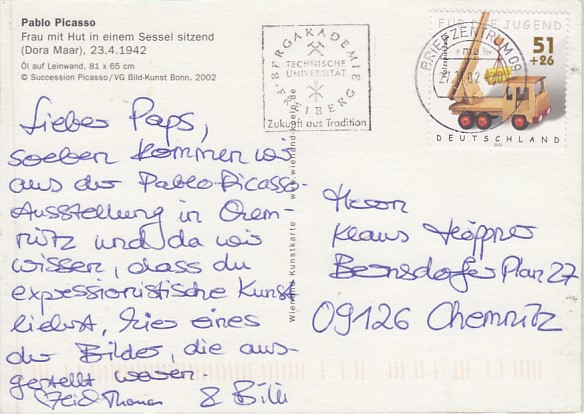 Pablo Picasso
Frau mit Hut in einem Sessel sitzend
(Dora Maar), 23.4.1942
Öl auf Leinwand, 81 x 65 cm
© Succession Picasso/VG Bild-Kunst Bonn. 2002
BERGAKADEMIE
TECHNISCHE
UNIVERSITÄT
FREIBERG
Zukunft aus Tradition
BRIEFZENTRUM 09
FÜR DIE JUGEND
51
+26
DEUTSCHLAND
Wienand Kunstkarte
Lieber Paps,
soeben kommen wir
aus der Pablo-Picasso-
Ausstellung in Chem-
nitz und da wir
wissen, dass du
expressionistische Kunst
liebst, hier eines
der Bilder, die aus-
gestellt waren.
Thomas & Billi
Herrn
Klaus Höppner
Bernsdorfer Plan 27
09126 Chemnitz